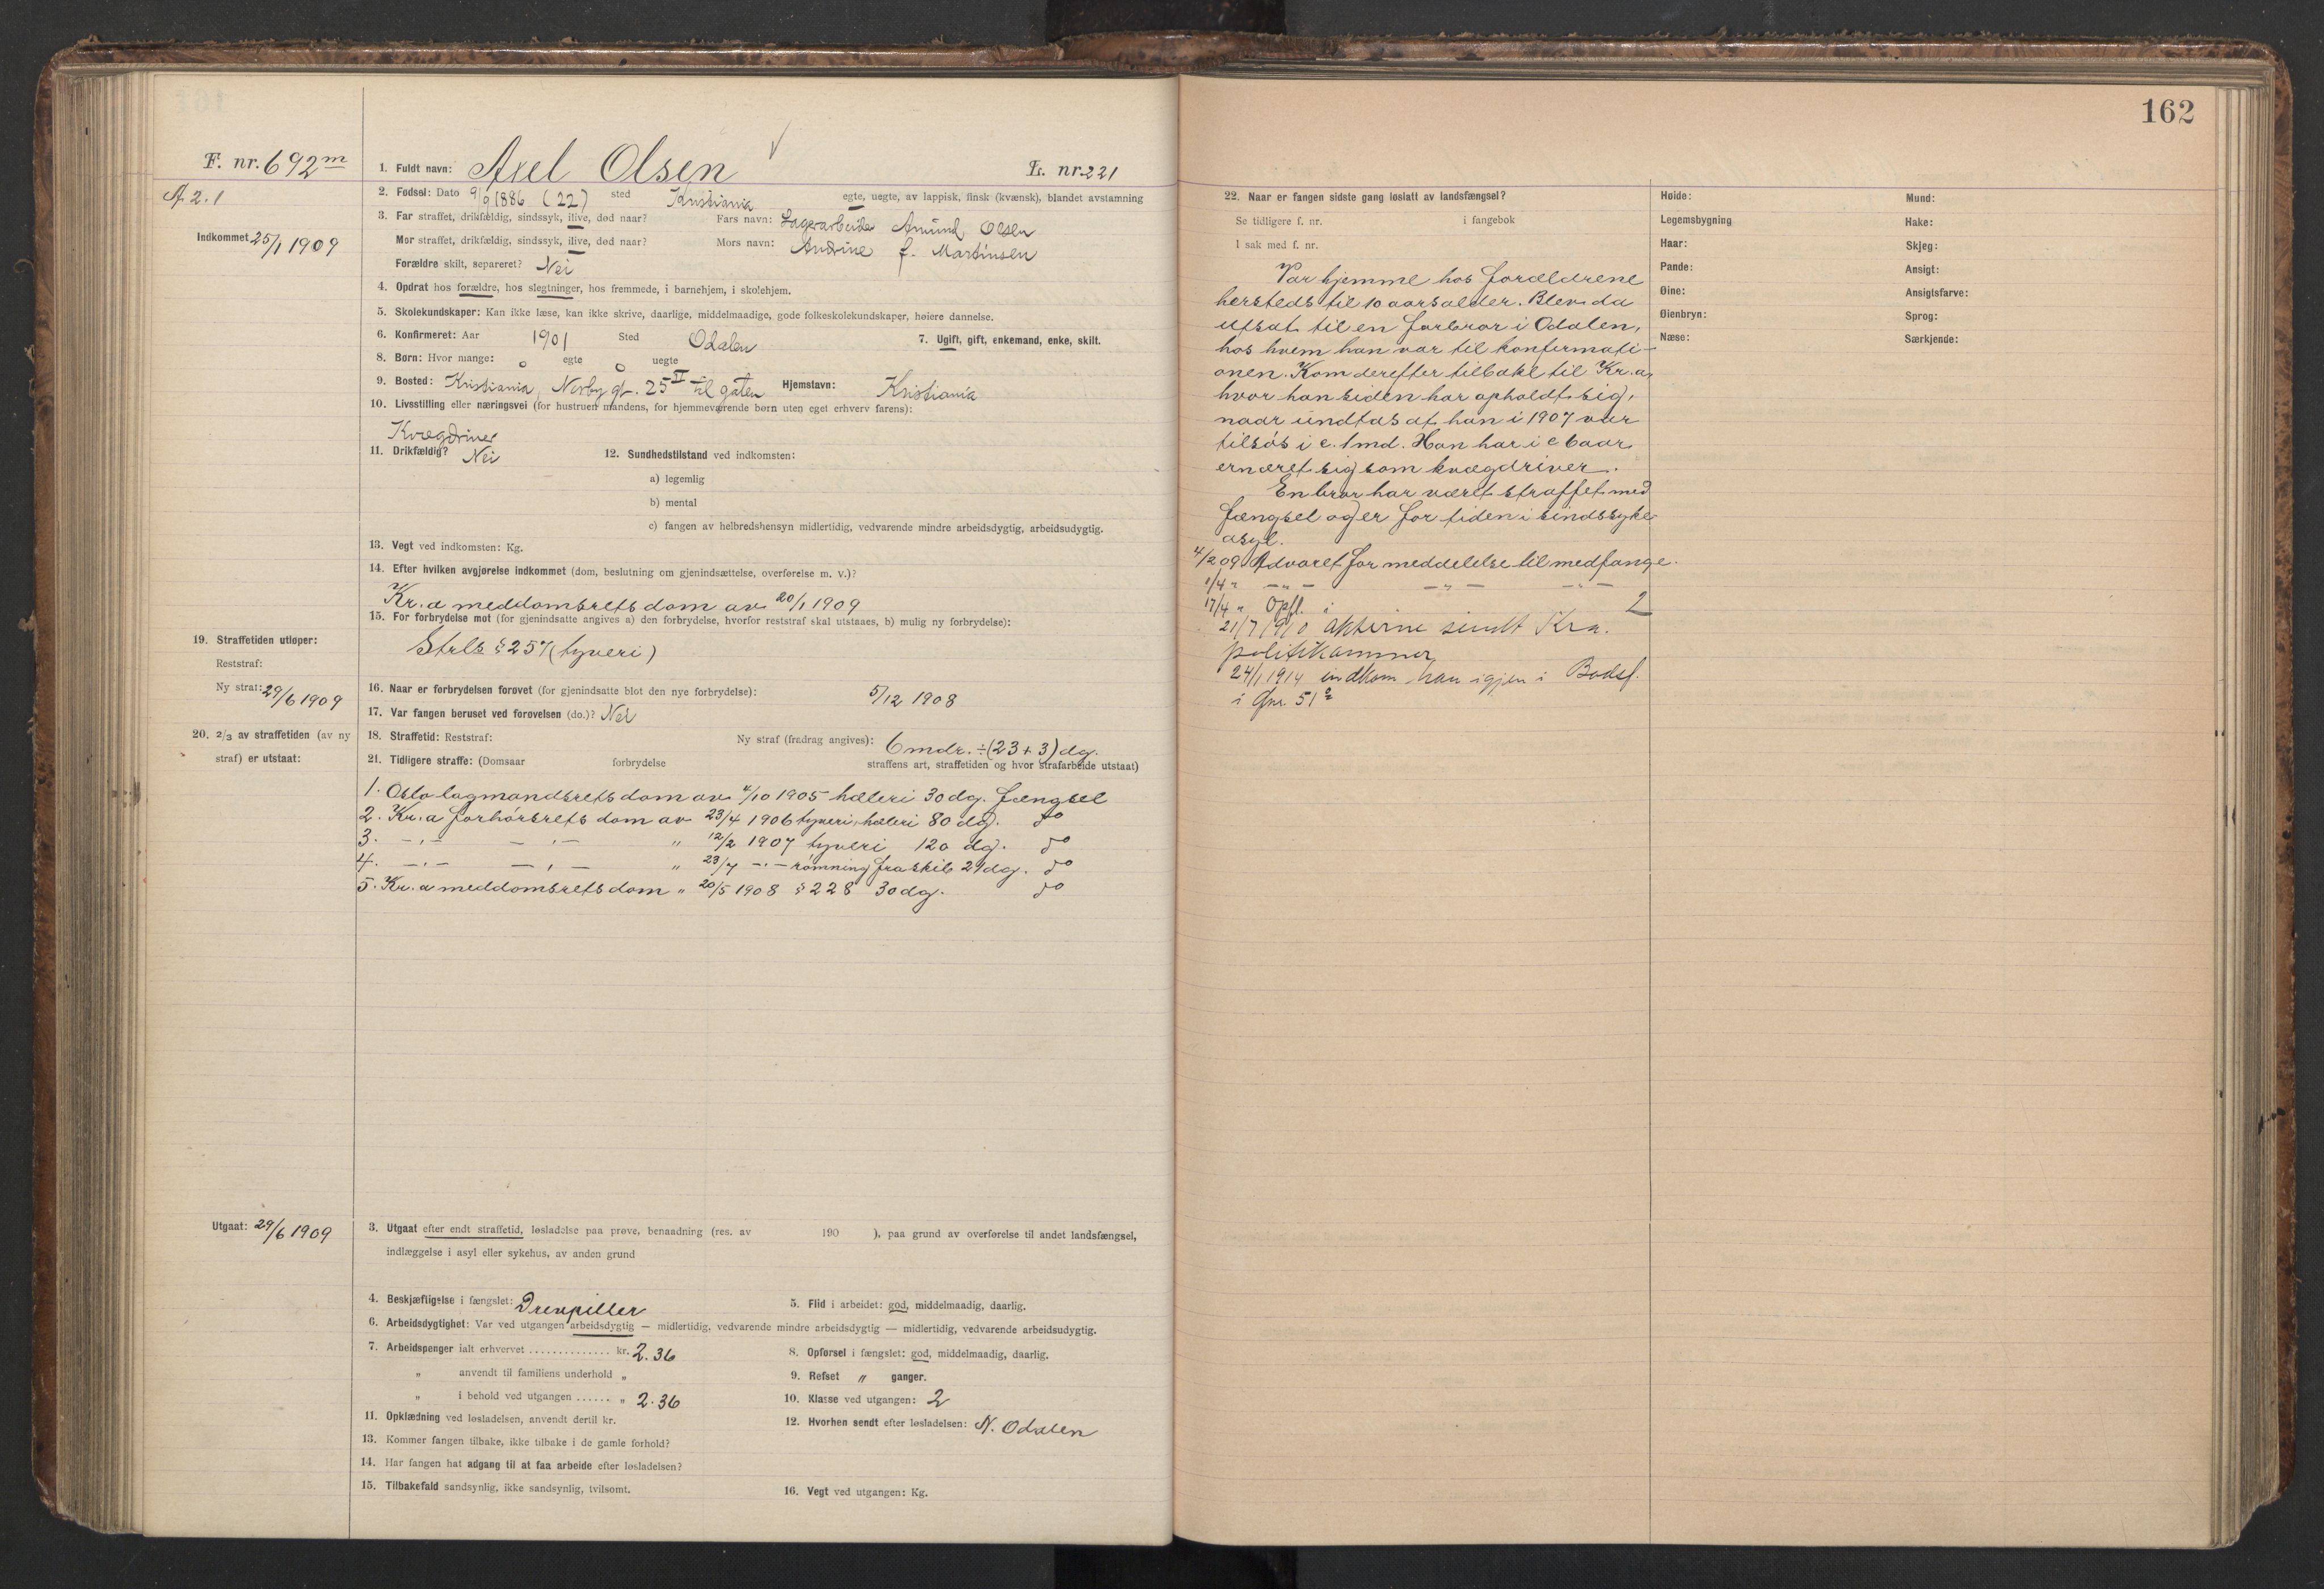 162
F. nr. 692 m
1. Fuldt navn: Axel Olsen
L. nr. 221
A 2.1
2. Fødsel: Dato 9/9 1886 (22) sted Kristiania egte, uegte, av lappisk, finsk (kvænsk), blandet avstamning
Indkommet 25/1 1909
3. Far straffet, drikfældig, sindssyk, ilive, død naar? Fars navn: Lagerarbeider Amund Olsen
Mor straffet, drikfældig, sindssyk, ilive, død naar? Mors navn: Andrine f. Martinsen
Forældre skilt, separeret? Nei
4. Opdrat hos forældre, hos slegtninger, hos fremmede, i barnehjem, i skolehjem.
5. Skolekundskaper: Kan ikke læse, kan ikke skrive, daarlige, middelmaadige, gode folkeskolekundskaper, høiere dannelse.
6. Konfirmeret: Aar 1901 Sted Odalen 7. Ugift, gift, enkemand, enke, skilt.
8. Børn: Hvor mange: o egte o uegte
9. Bosted: Kristiania, Norbygt. 25 II til gaten Hjemstavn: Kristiania
10. Livsstilling eller næringsvei (for hustruen mandens, for hjemmeværende børn uten eget erhverv farens):
Kvægdriver
11. Drikfældig? Nei 12. Sundhedstilstand ved indkomsten:
a) legemlig
b) mental
c) fangen av helbredshensyn midlertidig, vedvarende mindre arbeidsdygtig, arbeidsudygtig.
13. Vegt ved indkomsten: Kg.
14. Efter hvilken avgjørelse indkommet (dom, beslutning om gjenindsættelse, overførelse m. v.)?
Kr.a meddomsrets dom av 20/1 1909
15. For forbrydelse mot (for gjenindsatte angives a) den forbrydelse, hvorfor reststraf skal utstaaes, b) mulig ny forbrydelse):
19. Straffetiden utløper:
Strls § 257 (tyveri)
Reststraf:
Ny straf: 29/6 1909
16. Naar er forbrydelsen forøvet (for gjenindsatte blot den nye forbrydelse): 5/12 1908
17. Var fangen beruset ved forøvelsen (do.)? Nei
20. 2/3 av straffetiden (av ny
straf) er utstaat:
18. Straffetid: Reststraf: Ny straf (fradrag angives): 6 mdr. ÷ (23 + 3) dg.
21. Tidligere straffe: (Domsaar forbrydelse straffens art, straffetiden og hvor strafarbeide utstaat)
1. Oslo lagmandsrets dom av 4/10 1905 hæleri 30 dg. fængsel
2. Kr.a forhørsrets dom av 23/4 1906 tyveri, hæleri 80 dg. do
3. -"- -"- " 12/2 1907 tyveri 120 dg. do
4. -"- -"- " 23/7 -"- rømning fra skib 21 dg. do
5. Kr.a meddomsrets dom " 20/5 1908 § 228 30 dg. do
Utgaat: 29/6 1909
3. Utgaat efter endt straffetid, løsladelse paa prøve, benaadning (res. av 190 ), paa grund av overførelse til andet landsfængsel,
indlæggelse i asyl eller sykehus, av anden grund
4. Beskjæftigelse i fængslet: Drevpiller 5. Flid i arbeidet: god, middelmaadig, daarlig.
6. Arbeidsdygtighet: Var ved utgangen arbeidsdygtig — midlertidig, vedvarende mindre arbeidsdygtig — midlertidig, vedvarende arbeidsudygtig.
7. Arbeidspenger ialt erhvervet .............. kr. 2.36 8. Opførsel i fængslet: god, middelmaadig, daarlig.
" anvendt til familiens underhold " 9. Refset " ganger.
" i behold ved utgangen ...... " 2.36 10. Klasse ved utgangen: 2
11. Opklædning ved løsladelsen, anvendt dertil kr. 12. Hvorhen sendt efter løsladelsen: N. Odalen
13. Kommer fangen tilbake, ikke tilbake i de gamle forhold?
14. Har fangen hat adgang til at faa arbeide efter løsladelsen?
15. Tilbakefald sandsynlig, ikke sandsynlig, tvilsomt. 16. Vegt ved utgangen: Kg.
22. Naar er fangen sidste gang løslatt av landsfængsel?
Se tidligere f. nr. i fangebok
I sak med f. nr.
Var hjemme hos forældrene
hersteds til 10 aars alder. Blev da
utsat til en farbror i Odalen,
hos hvem han var til konfirmati-
onen. Kom derefter tilbake til Kr.a,
hvor han siden har opholdt sig,
naar undtas at han i 1907 var
tilsøs i c. 1 md. Han har i c 6 aar
ernæret sig som kvægdriver.
En bror har været straffet med
fængsel og er for tiden i sindssyke-
asyl.
4/2 09 Advaret for meddelelse til medfange.
1/4 " -"- -"- -"-
17/4 " Opfl. i 2
21/7 1910 akterne sendt Kra.
politikammer
24/1 1914 indkom han igjen i Bodsf.
i fnr. 51
Høide:
Legemsbygning
Haar:
Pande:
Øine:
Øienbryn:
Næse:
Mund:
Hake:
Skjeg:
Ansigt:
Ansigtsfarve:
Sprog:
Særkjende: